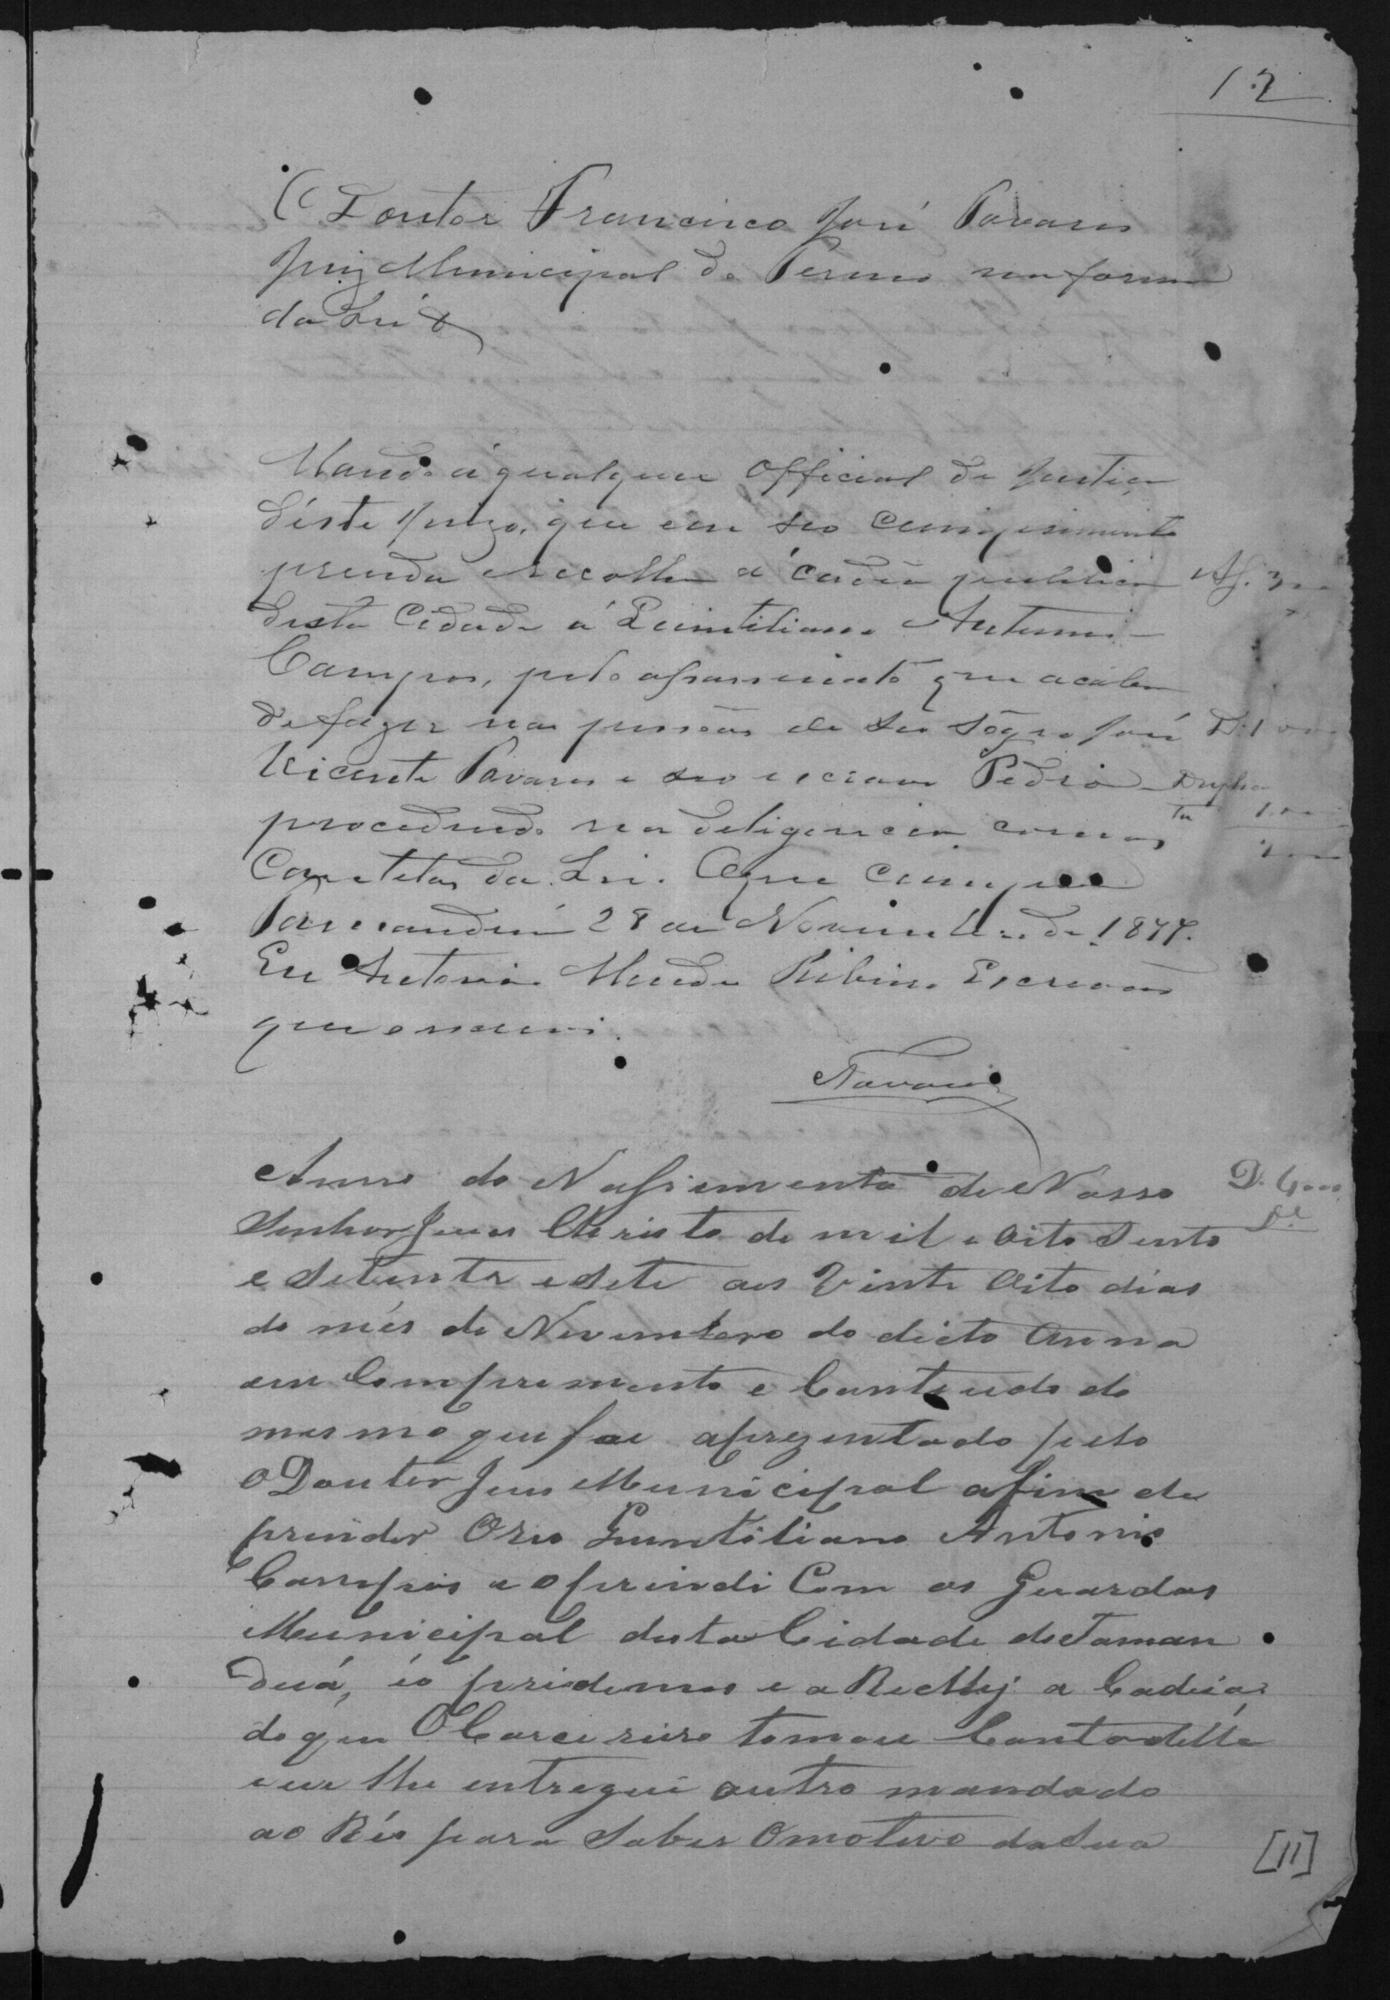 12
O Doutor Francisco José Tavares
Juiz Municipal do Termo na forma
da Lei &
Mando á qualquer Official de Justiça
déste Juizo, que em seo cumprimento
prenda e recolha á cadêa publica
desta Cidade á Quintiliano Antonio
Campos, pelo assassinato que acaba
de fazer nas pessôas de seo sôgro José
Vicente Tavares e seo escravo Pedro
procedendo na deligencia com as
Cautelas da Lei. O que cumpra
Tamanduá 28 de Novembro de 1877.
Eu Antonio Mendes Ribeiro Escrivão
que o escrevi.
Tavares
Anno do Nassimento de Nosso
Senhor Jesus Christo de mil e Oito Sento
e Setenta e Sete aos Vinte Oito dias
do mês de Novembro do dicto Anno
em Comprimento e Conteudo do
mesmo que foi aprezentado pelo
o Doutor Juis Municipal afim de
prender O reo Quintiliano Antonio
Campos e o prendi Com os Guardas
Municipal desta Cidade de Taman
duá, eo pridemos e a Recolhy a Cadeia
do que O Carcereiro tomou Conta delle
e eu lhe entregui outro mandado
ao Réo para Saber O motivo da Sua
[11]